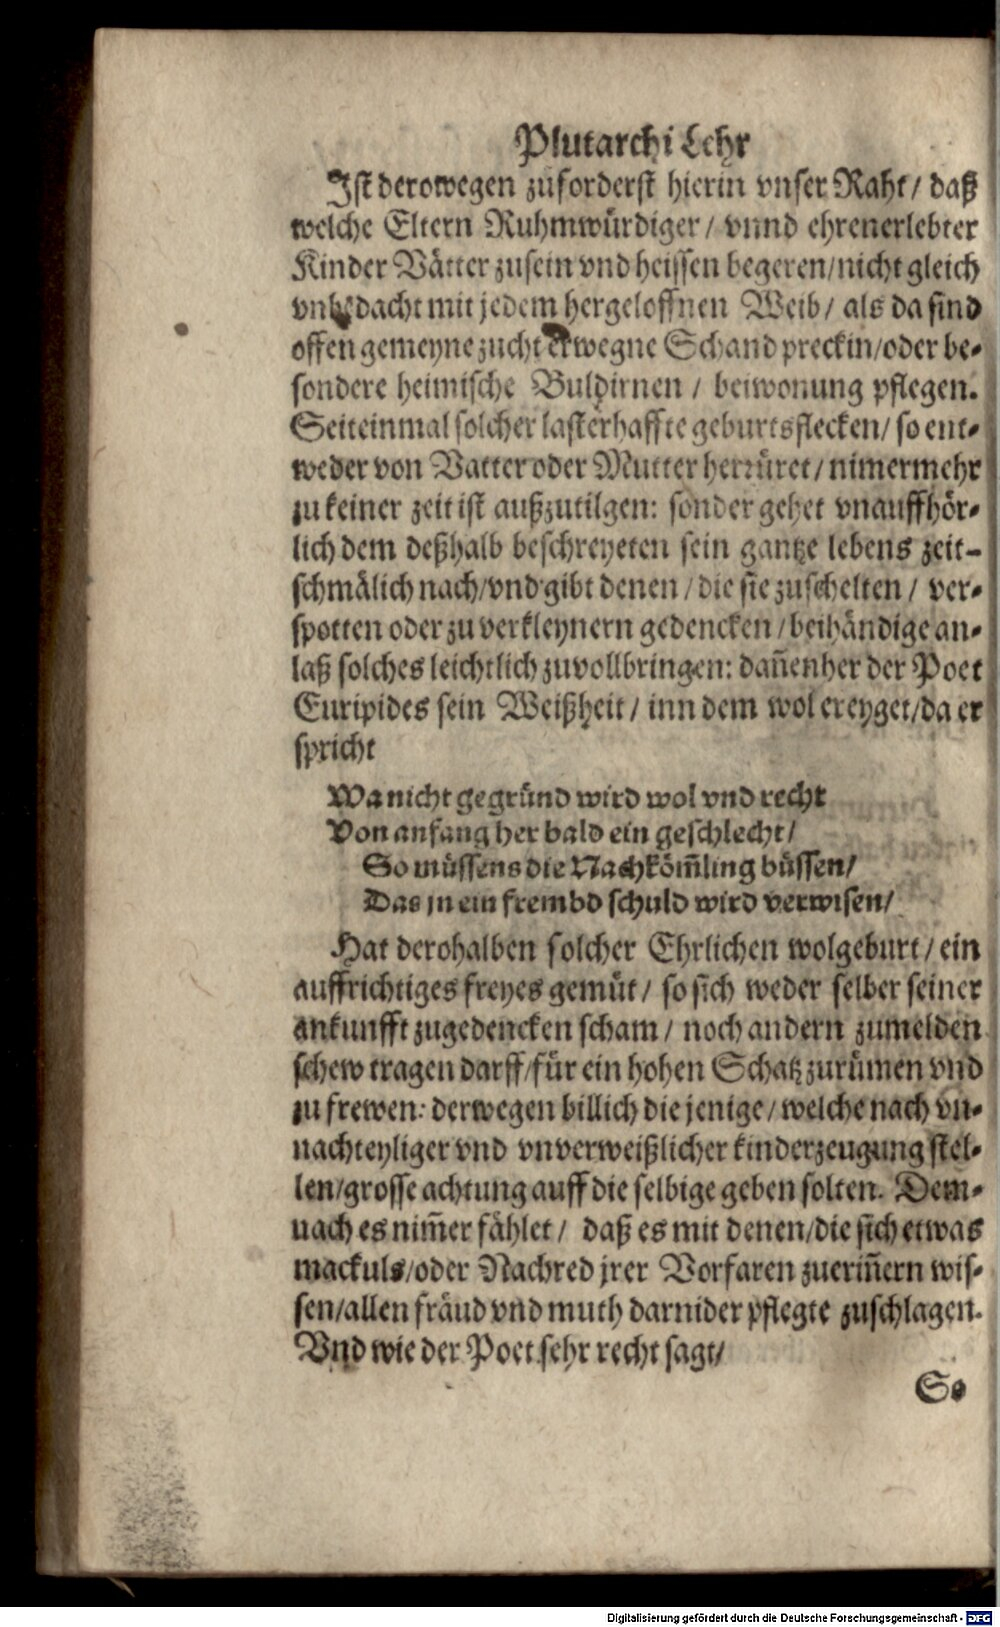 Plutarchi Lehr
Ist derowegen zuforderst hierin vnser Raht/ daß
welche Eltern Ruhmwürdiger/ vnnd ehrenerlebter
Kinder Vätter zusein vnd heissen begeren/nicht gleich
vnbedacht mit jedem hergeloffnen Weib/ als da sind
offen gemeyne zucht erwegne Schandpreckin/oder be-
sondere heimische Buldirnen / beiwonung pflegen.
Seiteinmal solcher lasterhaffte geburtsflecken/ so ent-
weder von Vatter oder Mutter herrüret/ nimermehr
zu keiner zeit ist außzutilgen: sonder gehet vnauffhör-
lich dem deßhalb beschreyeten sein gantze lebens zeit-
schmälich nach/vnd gibt denen / die sie zuschelten / ver-
spotten oder zu verkleynern gedencken / beihändige an-
laß solches leichtlich zuvollbringen: dañenher der Poet
Euripides sein Weißheit / inn dem wol ereyget/da er
spricht
Wa nicht gegründ wird wol vnd recht
Von anfang her bald ein geschlecht/
So müssens die Nachköm̃ling büssen/
Das jn ein frembd schuld wird verwisen/
Hat derohalben solcher Ehrlichen wolgeburt/ ein
auffrichtiges freyes gemüt/ so sich weder selber seiner
ankunfft zugedencken scham / noch andern zumelden
schew tragen darff/für ein hohen Schatz zurümen vnd
zu frewen: derwegen billich die jenige/ welche nach vn-
nachteyliger vnd vnverweißlicher kinderzeugung stel-
len/grosse achtung auff die selbige geben solten. Dem-
nach es nim̃er fählet/ daß es mit denen/die sich etwas
mackuls/oder Nachred jrer Vorfaren zueriñern wis-
sen/allen fräud vnd muth darnider pflegte zuschlagen.
Vnd wie der Poet sehr recht sagt/
So
Digitalisierung gefördert durch die Deutsche Forschungsgemeinschaft - DFG